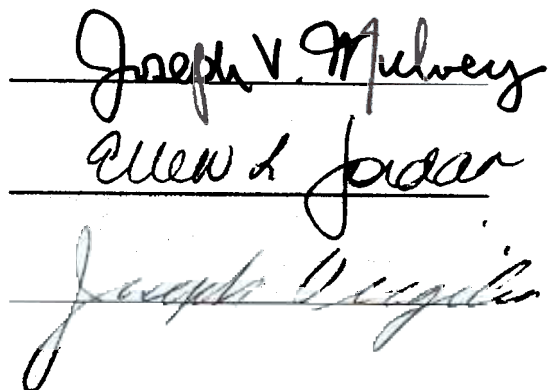 Joseph V. Mulvey
Ellen L Jordan
Joseph